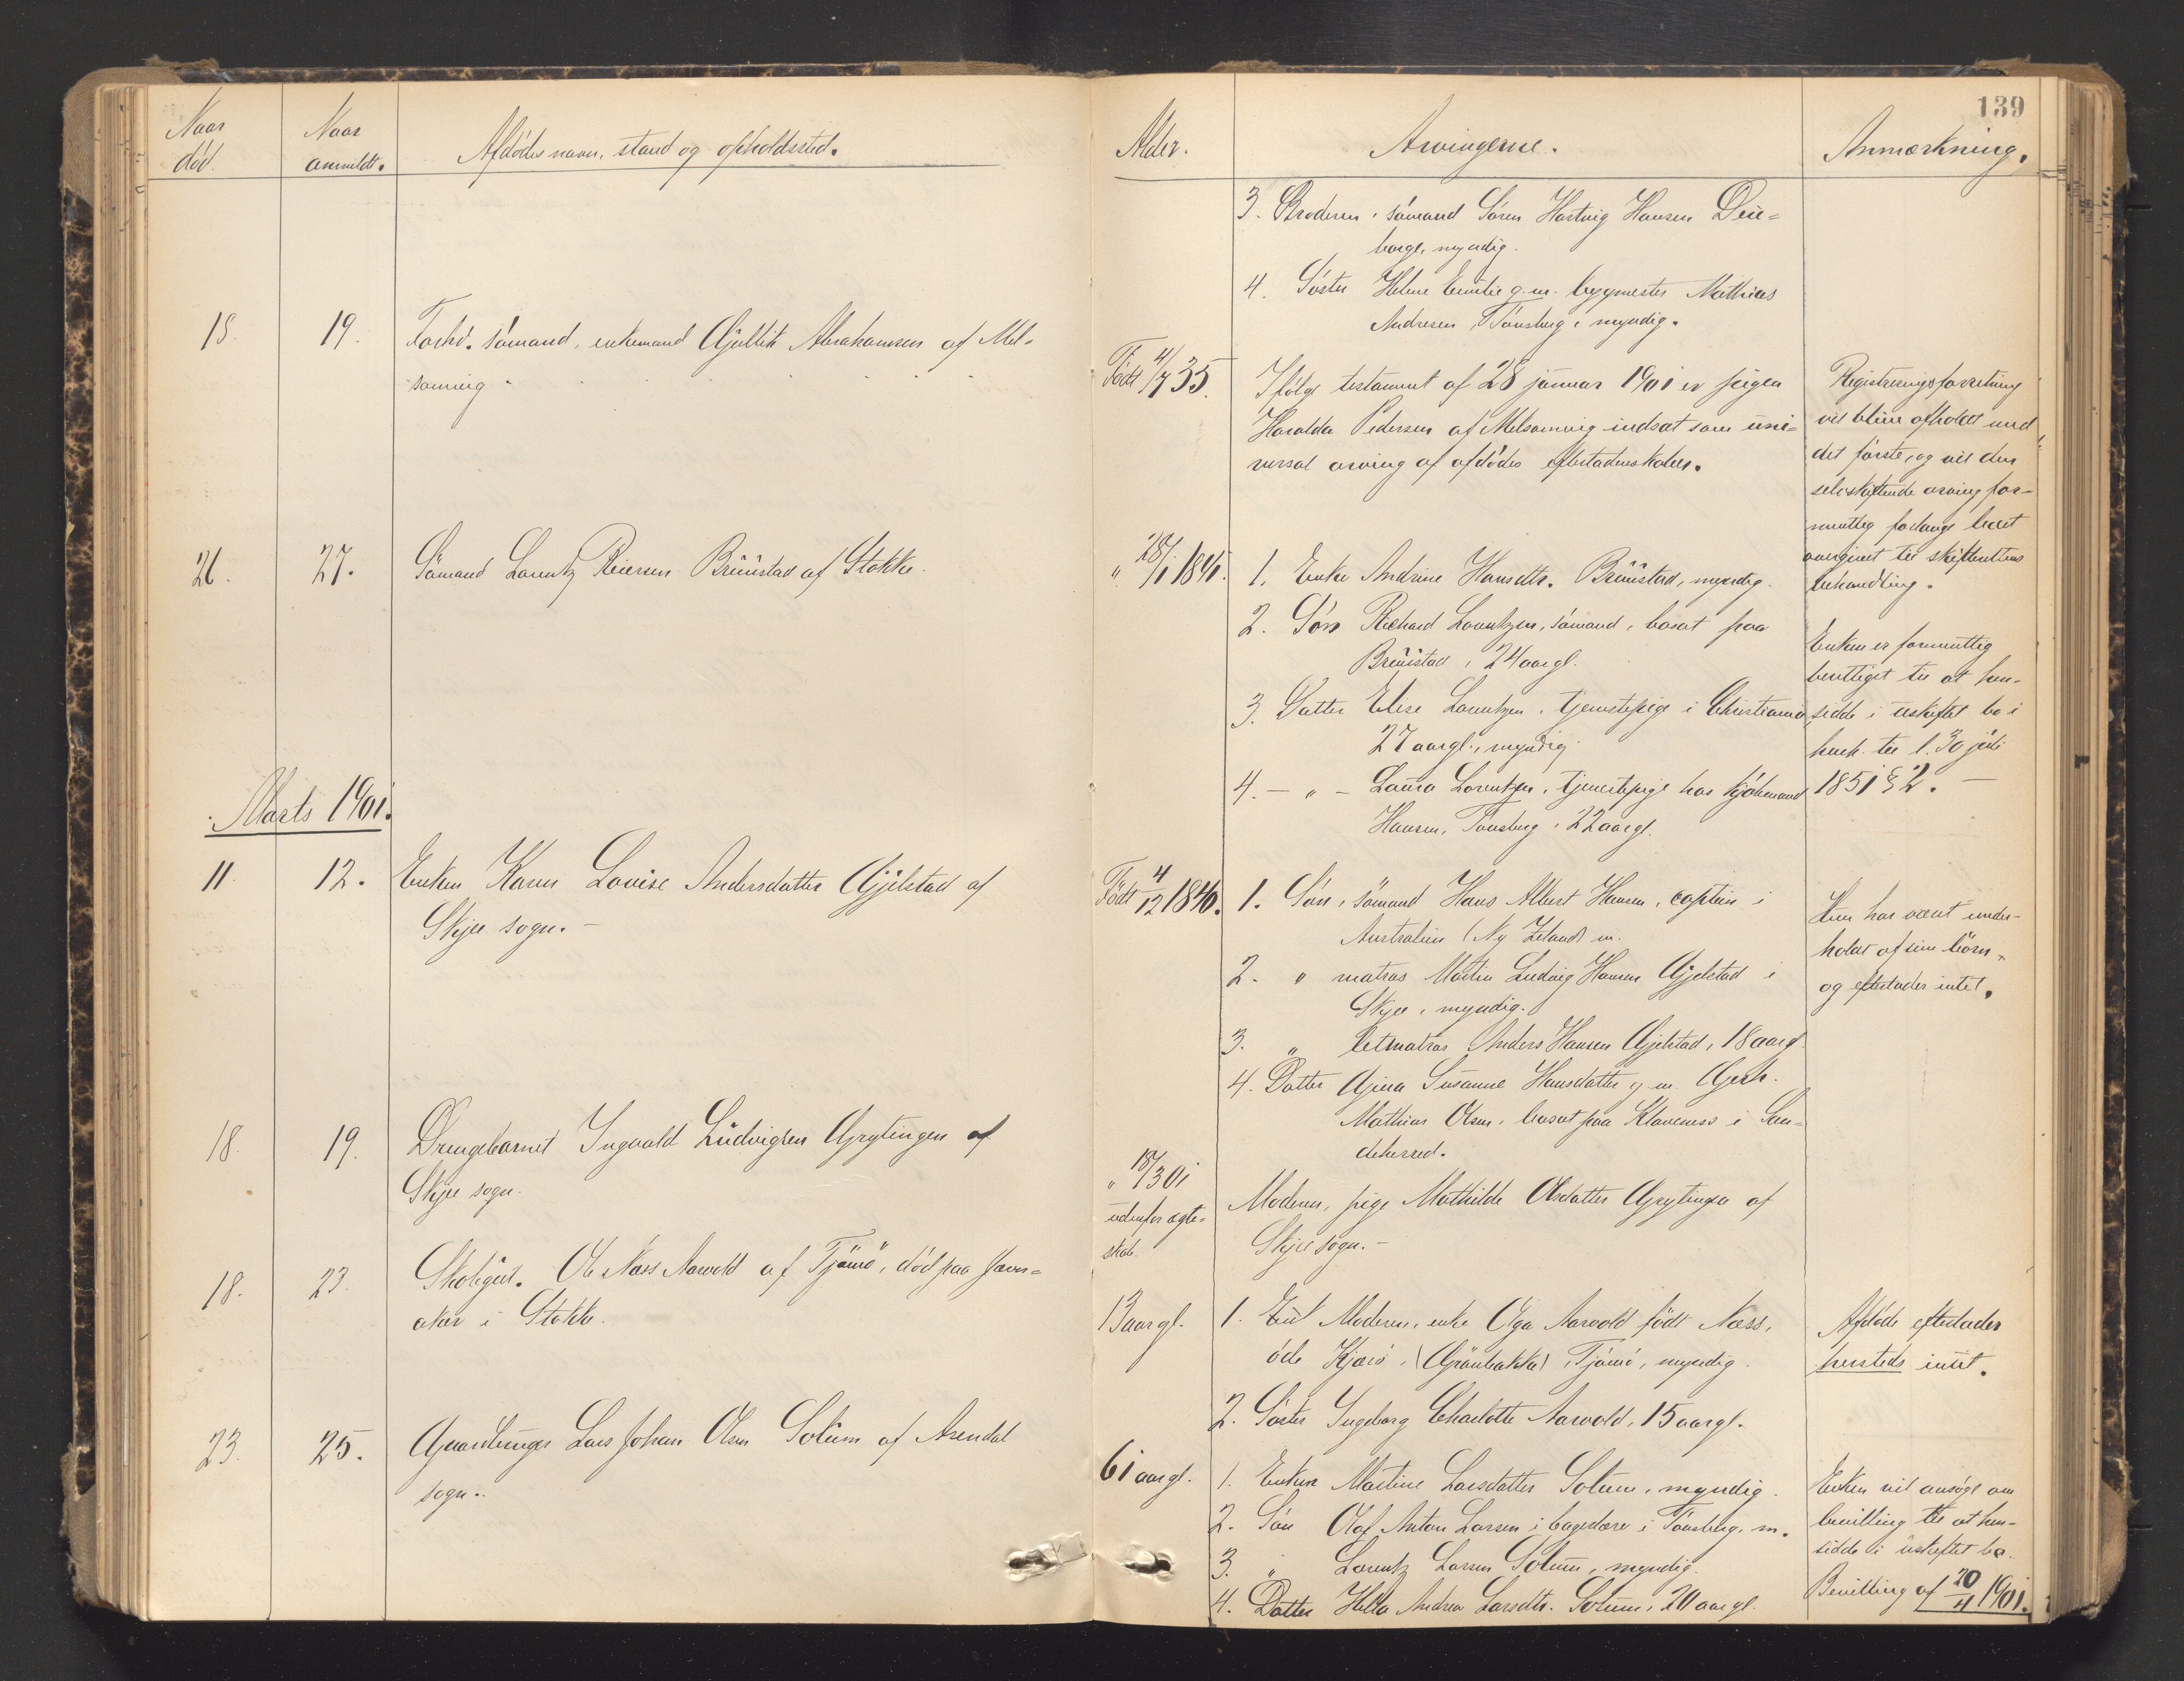 139
Naar død.
Naar anmeldt.
Afdødes navn, stand og opholdssted.
Alder.
Arvingerne.
Anmærkning.
3. Broderen, sømand Søren Hartvig Hansen
borge, myndig.
4. Søster Helene Emilie g. m. bygmester Mathias
Andresen, Tønsberg, myndig.
18. 19. Forhv. sømand, enkemand Gjullik Abrahamsen af Mel-
somvig
Født 4/7 35.
Ifølge testament af 28 januar 1901 er pigen
Haralda Pedersen af Melsomvig indsat som uni-
versal arving af afdødes efterladenskaber.
Registreringsforretning
vil blive afholdt med
det første, og vil den
selvskiftende arving for-
mentlig forlange boet
overgivet til skifterettens
behandling.
26. 27. Sømand Lorentz Reiersen Bruustad af Stokke.
" 28/1 1841.
1. Enke Andrine Hansdtr. Bruustad, myndig.
2. Søn Richard Lorentzen, sømand, bosat paa
Bruustad, 24 aar gl.
3. Datter Elise Lorentzen, tjenestepige i Christiania,
27 aar gl., myndig
4. — " — Laura Lorentzen, tjenestepige hos kjøbmand
Hansen, Tønsberg, 22 aar gl.
Enken er formentlig
berettiget til at hen-
sidde i uskiftet bo i
henh. til l. 30 juli
1851 § 2. —
Marts 1901.
11. 12. Enken Karen Lovise Andersdatter Gjelstad af
Skjee sogn. —
Født 4/12 1840.
1. Søn, sømand Hans Albert Hansen, captein i
Australien (Ny Zeland) m.
2. " matros Martin Ludvig Hansen Gjelstad i
Skjee, myndig.
3. " letmatros Anders Hansen Gjelstad, 18 aar gl.
4. Datter Gina Susanne Hansdatter g. m. Gerh.
Mathias Olsen, bosat paa Klaveness i San-
deherred.
Hun har været under-
holdt af sine børn,
og efterlader intet.
18. 19. Drengebarnet Ingvald Ludvigsen Grytingen af
Skjee sogn.
" 18/3 01
udenfor ægte-
skab.
Moderen, pige Mathilde Olsdatter Grytingen af
Skjee sogn. —
18. 23. Skolegut. Ole Næss Aarvold af Tjømø, død paa
aker i Stokke.
13 aar gl.
1. Moderen, enke Olga Aarvold født Næss,
Kjærø, (Grønbakka) Tjømø, myndig.
2. Søster Ingeborg Charlotte Aarvold, 15 aar gl.
Afdøde efterlader
hersteds intet.
23. 25. Gaardbruger Lars Johan Olsen Solum af Arendal
sogn.
61 aar gl.
1. Enken Martine Larsdatter Solum, myndig.
2. Søn Olaf Anton Larsen i bagedøre i Tønsberg, m.
3. " Lorentz Larsen Solum, myndig.
4. Datter Hella Andrea Larsdtr. Solum, 20 aar gl.
Enken vil ansøge om
bevilling til at hen-
sidde i uskiftet bo.
Bevilling af 20/4 1901.